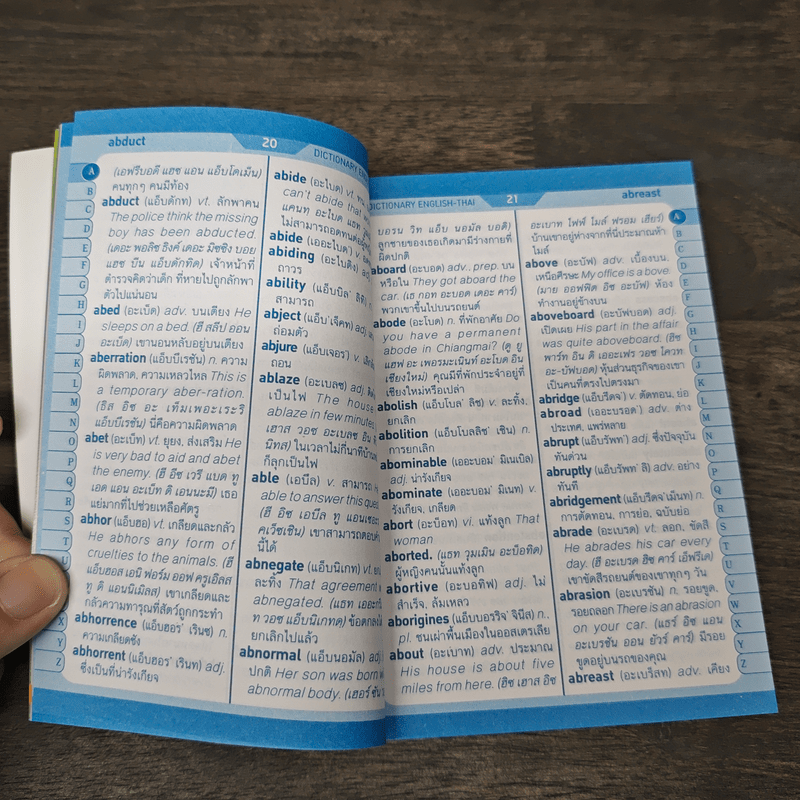 abduct
20
DICTIONARY
A
(เอฟรีบอดี แฮซ แอน แอ็บโดเม็น)
คนทุกๆ คนมีท้อง
abduct (แอ็บดักท) vt. ลักพาคน
The police think the missing
boy has been abducted.
(เดอะ พอลิซ ธิงค์ เดอะ มิซซิง บอย
แฮซ บีน แอ็บดักทิด) เจ้าหน้าที่
ตำรวจคิดว่าเด็ก ที่หายไปถูกลักพา
ตัวไปแน่นอน
abed (อะเบ็ด) adv. บนเตียง He
sleeps on a bed. (ฮี สลีปิ ออน
อะเบ็ด) เขานอนหลับอยู่บนเตียง
aberration (แอ็บบีเรชัน) n. ความ
ผิดพลาด, ความเหลวไหล This is
a temporary aber-ration.
(ธิส อิซ อะ เท็มเพอะเระริ
แอ็บบีเรชัน) นี่คือความผิดพลาด
abet (อะเบ็ท) vt. ยุยง, ส่งเสริม He
is very bad to aid and abet
the enemy. (ฮี อีซ เวรี แบด ทู
เอด แอน อะเบ็ท ดิ เอนนะมี) เธอ
แย่มากที่ไปช่วยเหลือศัตรู
abhor (แอ็บฮอ) vt. เกลียดและกลัว
He abhors any form of
cruelties to the animals. (ฮี
แอ็บฮอส เอนิ ฟอร์ม ออฟ ครูเอ็ลส
ทู ดิ แอนนิเมิลส) เขาเกลียดและ
กลัวความทารุณที่สัตว์ถูกกระทำ
abhorrence (แอ็บฮอร' เรินซ) n.
ความเกลียดชัง
abhorrent (แอ็บฮอร' เรินท) adj.
ซึ่งเป็นที่น่ารังเกียจ
abide (อะไบด) vt. ทน
can't abide that
แคนท อะไบด แธท
ไม่สามารถอดทนต่อ
abide (เออะไบด') v.
abiding (อะไบดิง)
ถาวร
ability (แอ็บบิล' ลิที)
สามารถ
abject (แอ็บ'เจ็คท)
ถ่อมตัว
abjure (แอ็บเจอร')
ถอน
ablaze (อะเบลซ) adj
เป็นไฟ The house
ablaze in few minutes.
เฮาส วอซ อะเบลซ อิน
นิทส) ในเวลาไม่กี่นาทีบ้าน
ก็ลุกเป็นไฟ
able (เอเบิ้ล) v. สามารถ
able to answer this
(ฮี อีซ เอเบิล ทู แอนเซอ
เควีซเชิน) เขาสามารถตอบ
นี้ได้
abnegate (แอ็บนิเกท) vt.
ละทิ้ง That agreement
abnegated. (แธท เออะ
ท วอซ แอ็บนิเกทด) ข้อตกลง
ยกเลิกไปแล้ว
abnormal (แอ็บนอมัล) adj
ปกติ Her son was born
abnormal body. (เฮอร์ ซัน
DICTIONARY ENGLISH-THAI
21
abreast
บอรน วิท แอ็บ นอมัล บอดิ)
ลูกชายของเธอเกิดมามีร่างกายที่
ผิดปกติ
aboard (อะบอด) adv., prep. บน
หรือใน They got aboard the
car. (เธ กอท อะบอด เดอะ คาร์)
พวกเขาขึ้นไปบนรถยนต์
abode (อะโบด) n. ที่พักอาศัย Do
you have a permanent
abode in Chiangmai? (ดู ยู
แฮฟ อะ เพอรมะเนินท์ อะโบด อิน
เชียงใหม่) คุณมีที่พักประจำอยู่ที่
เชียงใหม่หรือเปล่า
abolish (แอ็บโบล' ลิช) v. ละทิ้ง,
ยกเลิก
abolition (แอ็บโบลลิช' เชิน) n.
การยกเลิก
abominable (เออะบอม' มิเนเบิล)
adj. น่ารังเกียจ
abominate (เออะบอม' มิเนท) v.
รังเกียจ, เกลียด
abort (อะบ๊อท) vi. แท้งลูก That
woman
aborted. (แธท วูมเมิน อะบ๊อทิด)
ผู้หญิงคนนั้นแท้งลูก
abortive (อะบอทิฟ) adj. ไม่
สำเร็จ, ล้มเหลว
aborigines (แอ็บบอริจ' จินีส) n.,
pl. ชนเผ่าพื้นเมืองในออสเตรเลีย
about (อะเบาท) adv. ประมาณ
His house is about five
miles from here. (ฮิซ เฮาส อิซ
อะเบาท ไฟฟ์ ไมล์ ฟรอม เฮียร์)
บ้านเขาอยู่ห่างจากที่นี่ประมาณห้า
ไมล์
above (อะบัฟ) adv. เบื้องบน,
เหนือศีรษะ My office is a bove.
(มาย ออฟฟิต อิซ อะบัฟ) ห้อง
ทำงานอยู่ข้างบน
aboveboard (อะบัฟบอด) adj.
เปิดเผย His part in the affair
was quite aboveboard. (ฮิซ
พาร์ท อิน ดิ เออะเฟร วอซ ไควท
อะ-บัฟบอด) หุ้นส่วนธุรกิจของเขา
เป็นคนที่ตรงไปตรงมา
abridge (แอ็บริดจ') v. ตัดทอน, ย่อ
abroad (เออะบรอด') adv. ต่าง
ประเทศ, แพร่หลาย
abrupt (แอ็บรัพท') adj. ซึ่งปัจจุบัน
ทันด่วน
abruptly (แอ็บรัพท' ลิ) adv. อย่าง
ทันที
abridgement (แอ็บริดจ'เม้นท) n.
การตัดทอน, การย่อ, ฉบับย่อ
abrade (อะเบรด) vt. ลอก, ขัดสี
He abrades his car every
day. (ฮี อะเบรด ฮิซ คาร์ เอ็ฟรีเด)
เขาขัดสีรถยนต์ของเขาทุกๆ วัน
abrasion (อะเบรชัน) n. รอยขูด,
รอยถลอก There is an abrasion
on your car. (แธร์ อีซ แอน
อะเบรชัน ออน ยัวร์ คาร์) มีรอย
ขูดอยู่บนรถของคุณ
abreast (อะเบร็สท) adv. เคียง
A
B
C
D
E
F
G
H
I
J
K
L
M
N
O
P
Q
R
S
T
U
V
W
X
Y
Z